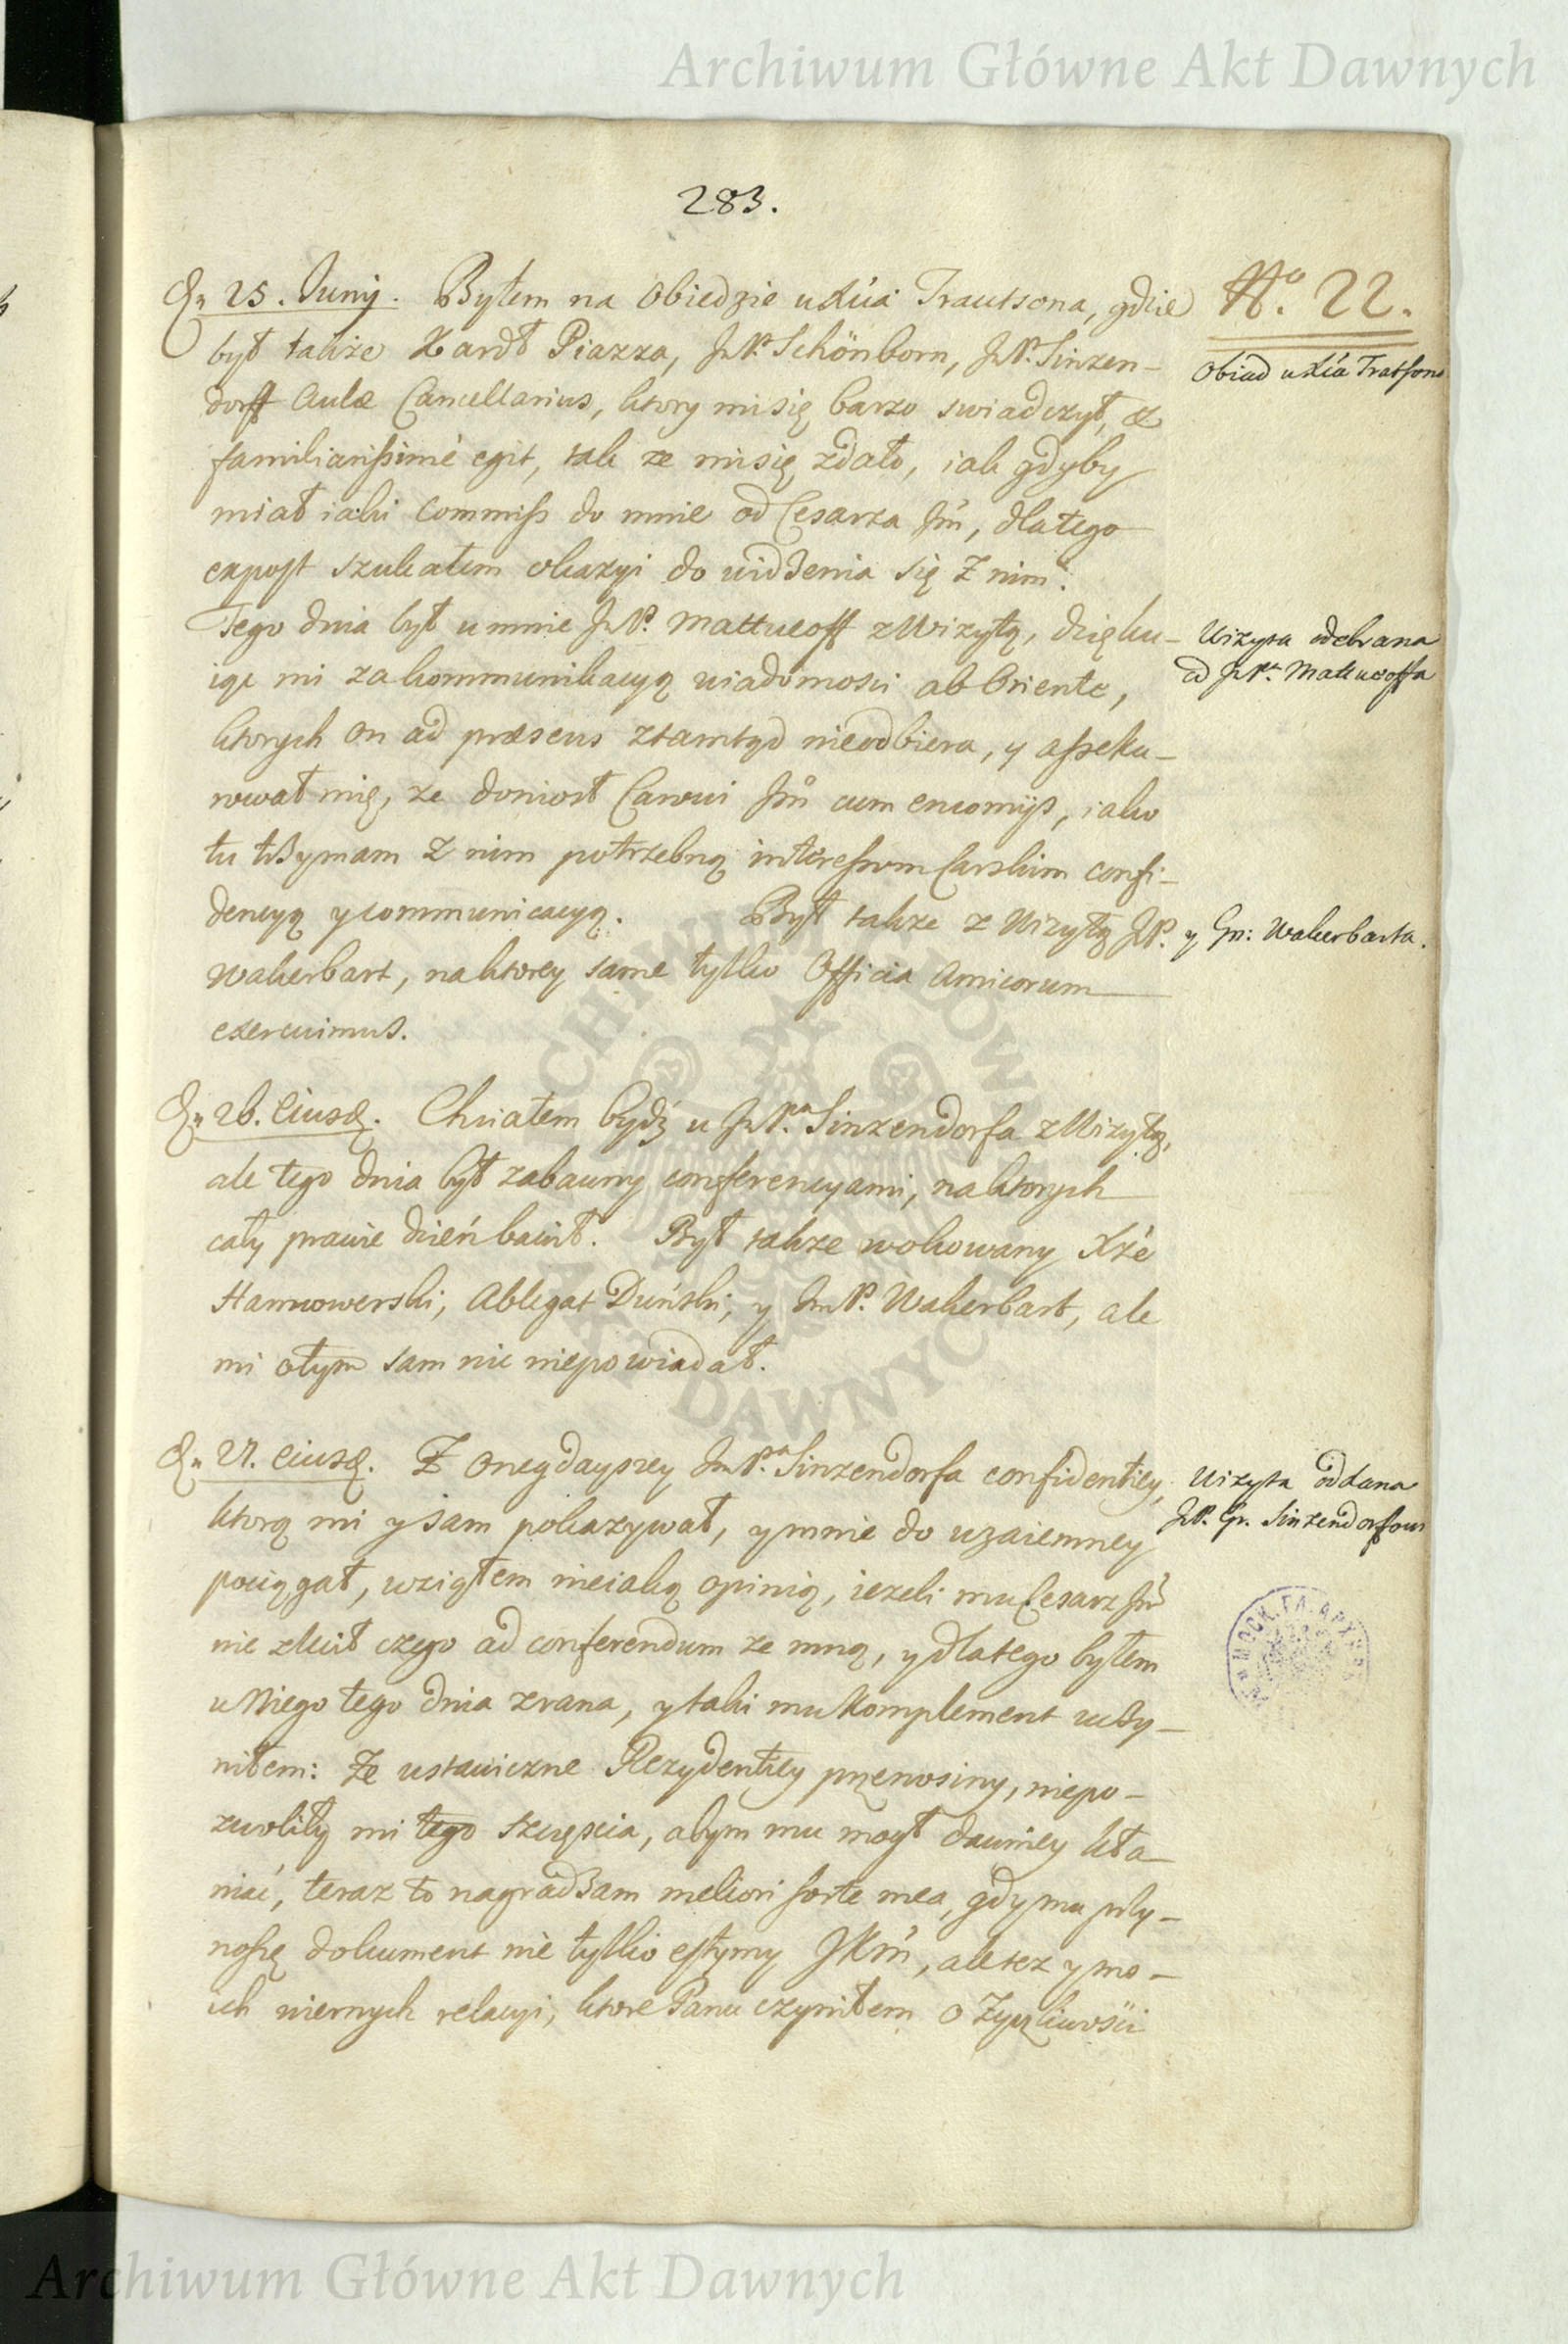 Archiwum Główne Akt Dawnych
283.
Nº. 22.
Dn 25. Junij. Byłem na Obiedzie u Xcia Trautsona, gdzie
Obiad u Xcia Tratsona
był takze Xardł Piazza, JmP. Schönborn, JmP. Sinzen-
dorff Aulæ Cancellarius, ktory mi się barzo swiadczył, &
familiarissimè egit, tak ze mi się zdało, iak gdyby
miał iaki Commiss do mnie od Cesarza Jmi, dlatego
expost szukałem okazyi do widzenia się z nim.
Tego dnia był u mnie JmP. Mattueoff z Wizytą, dzięku-
Wizyta odebrana
od JmPa. Mattueoffa
iąc mi za kommunikacyą wiadomosci ab Oriente,
ktorych on ad præsens ztamtąd nieodbiera, y asseku-
rował mię, ze doniosł Carowi Jmci cum encomijs, iako
tu trzymam z nim potrzebną interessom Carskim confi-
dencyą y communicacyą. Był takze z Wizytą JP.
y Gn: Wakerbarta.
Wakerbart, na ktorey same tylko Officia Amicorum
exercuimus.
Dn 26. Eiusd. Chciałem bydź u JmPa. Sinzendorfa z Wizytą,
ale tego dnia był zabawny conferencyami, na ktorych
cały prawie dzień bawił. Był takze wokowany Xże
Hannowerski, Ablegat Duński, y JmP. Wakerbart, ale
mi o tym sam nic niepowiadał.
Dn 27. Eiusd. Z onegdayszey JmPa. Sinzendorfa confidentiey,
Wizyta oddana
JP. Gr. Sinzendorfowi
ktorą mi y sam pokazywał, y mnie do wzaiemney
pociągał, wziąłem nieiaką opinią, iezeli mu Cesarz Jmć
nie zlecił czego ad conferendum ze mną, y dlatego byłem
u Niego tego dnia zrana, y taki mu Komplement uczy-
niłem: Ze ustawiczne Rezydentiey przenosiny, niepo-
zwoliły mi tego szczęscia, abym mu mogł dawniey kła-
niać, teraz to nagradzam meliori sorte mea, gdy mu przy-
noszę dokument nie tylko estymy JKMci, ale tez y mo-
ich wiernych relacyi, ktore Panu czyniłem o zyczliwości
МОСК. ГЛ. АРХИВ
ARCHIWUM GŁÓWNE
AKT DAWNYCH
Archiwum Główne Akt Dawnych